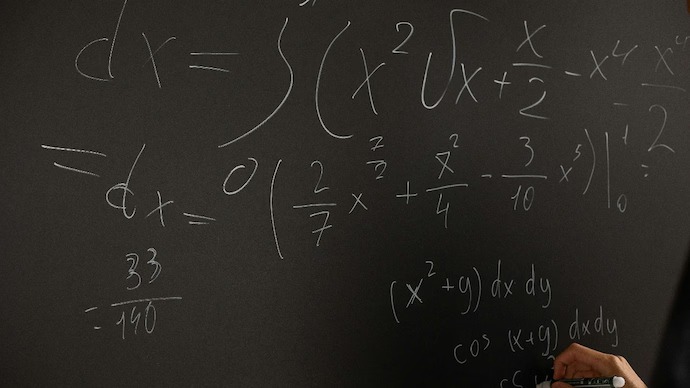 dx = ∫ (x² √x + x/2 - x⁴ - x⁴/2
= dx = 0 (2/7 x^7/2 + x²/4 - 3/10 x⁵) |₀¹ =
= 33/140
(x² + y) dx dy
cos (x+y) dx dy